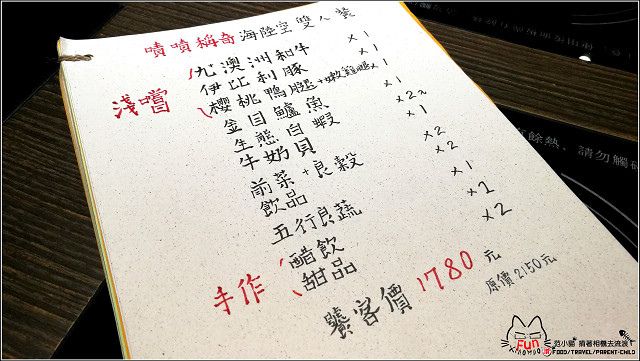 嘖嘖稱奇 海陸空雙人餐
淺嚐
九澳洲和牛 x1
伊比利豚
櫻桃鴨腿+嫩雞腿 x1
金目鱸魚 x1
生態白蝦 x2
牛奶貝 x1
前菜+良穀 x2
飲品 x2
五行良蔬 x1
手作
醋飲 x2
甜品 x2
饗客價1780元
原價2150元
有餘熱、請勿觸碰
FUN
范小貓 揹著相機去流浪
FOOD/TRAVEL/PARENT-CHILD